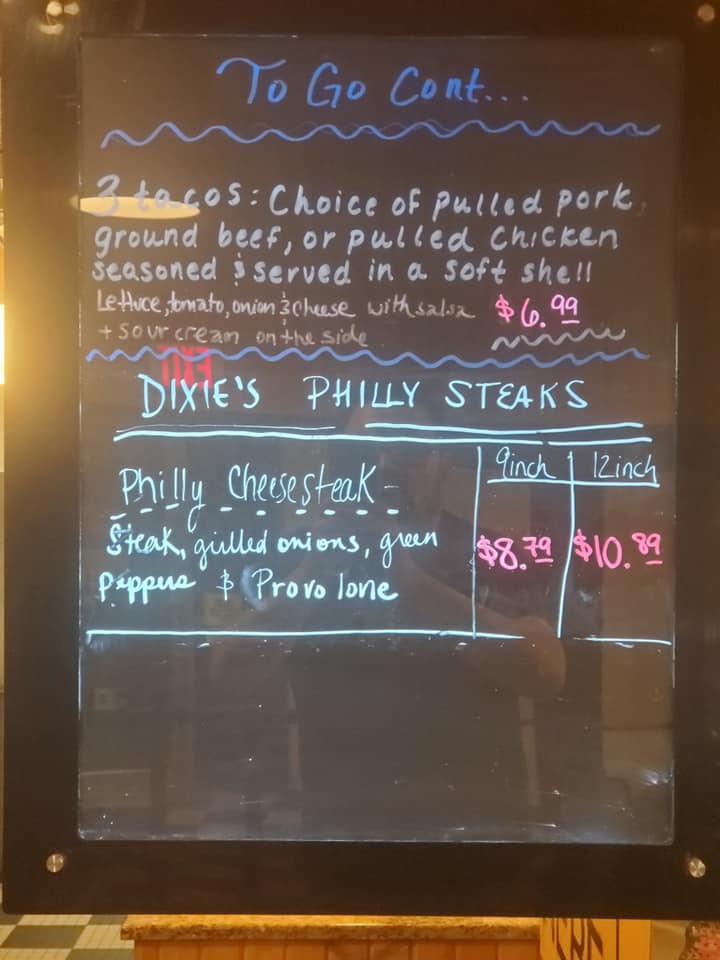 To Go Cont...
3 tacos: Choice of pulled pork,
ground beef, or pulled chicken
seasoned & served in a soft shell
Lettuce, tomato, onion & cheese with salsa $6.99
+ sour cream on the side
DIXIE'S PHILLY STEAKS
9inch 12inch
Philly Cheesesteak -
Steak, grilled onions, green $8.79 $10.89
Peppers & Provolone